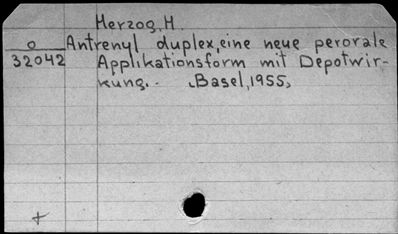 Herzog, H.
o Antrenyl duplex, eine neue perorale
32042 Applikationsform mit Depotwir-
kung.- (Basel, 1955)
+